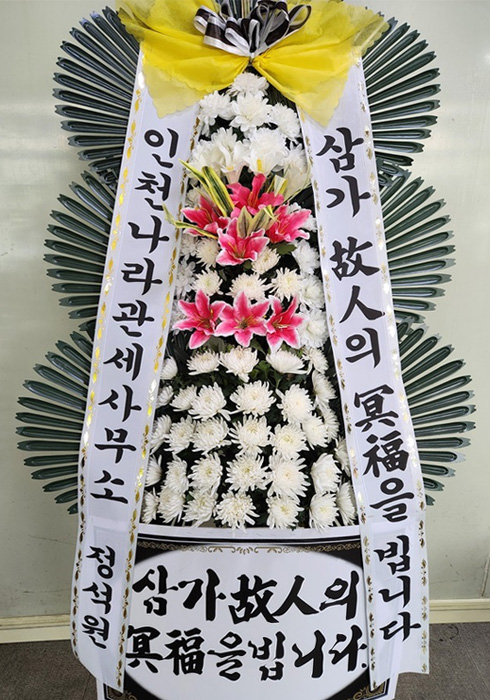 삼가 故人의 冥福을 빕니다
인천나라관세사무소 정석원
삼가故人의
冥福을빕니다.